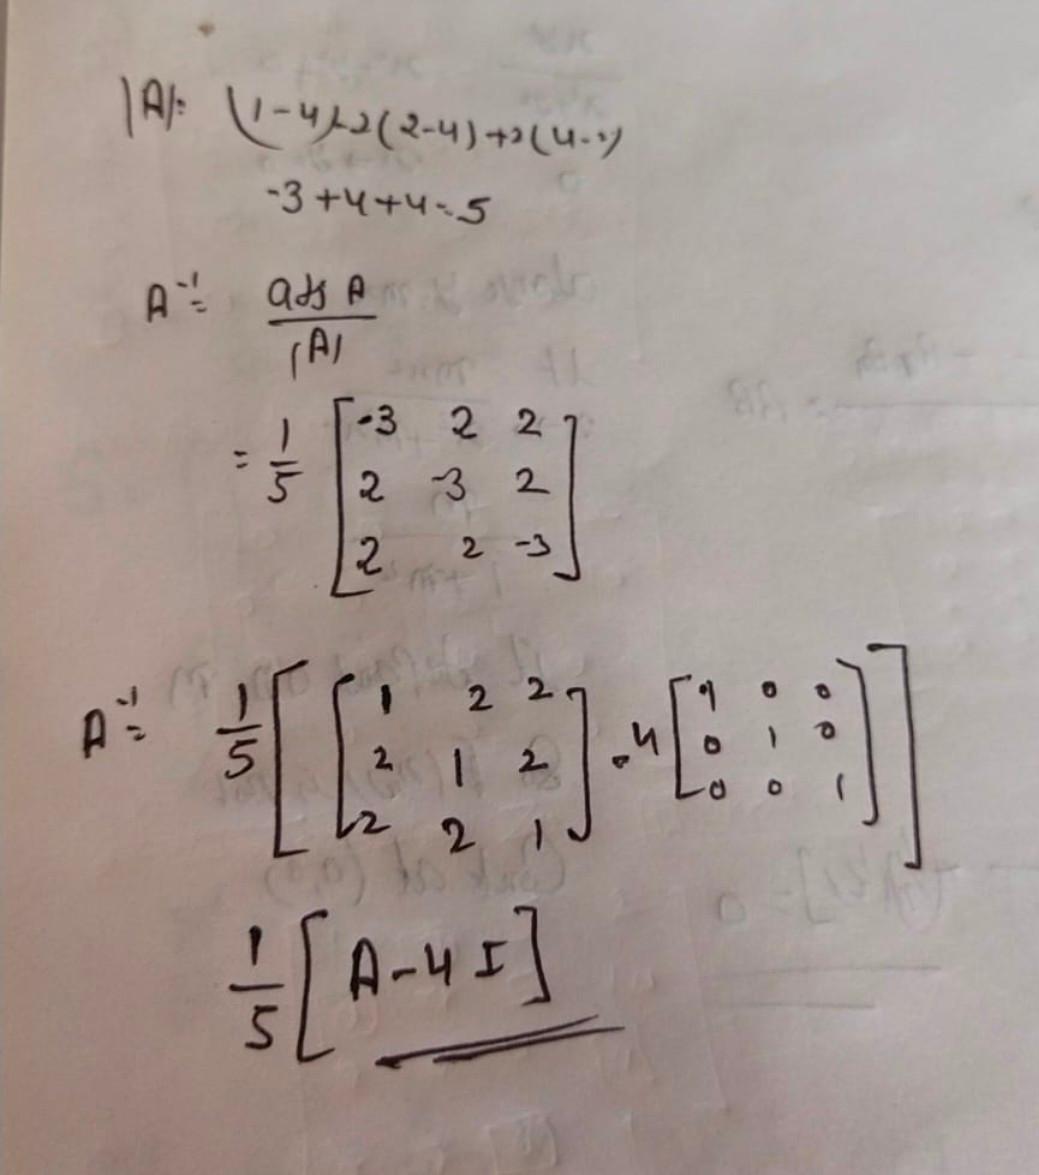 |A|= (1-4)-2(2-4)+2(4-2)
-3+4+4=5
A⁻¹= adj A
|A|
= 1/5 [-3 2 2
2 -3 2
2 2 -3]
A⁻¹= 1/5 [[1 2 2
2 1 2
2 2 1] -4 [1 0 0
0 1 0
0 0 1]]
1/5 [A-4I]